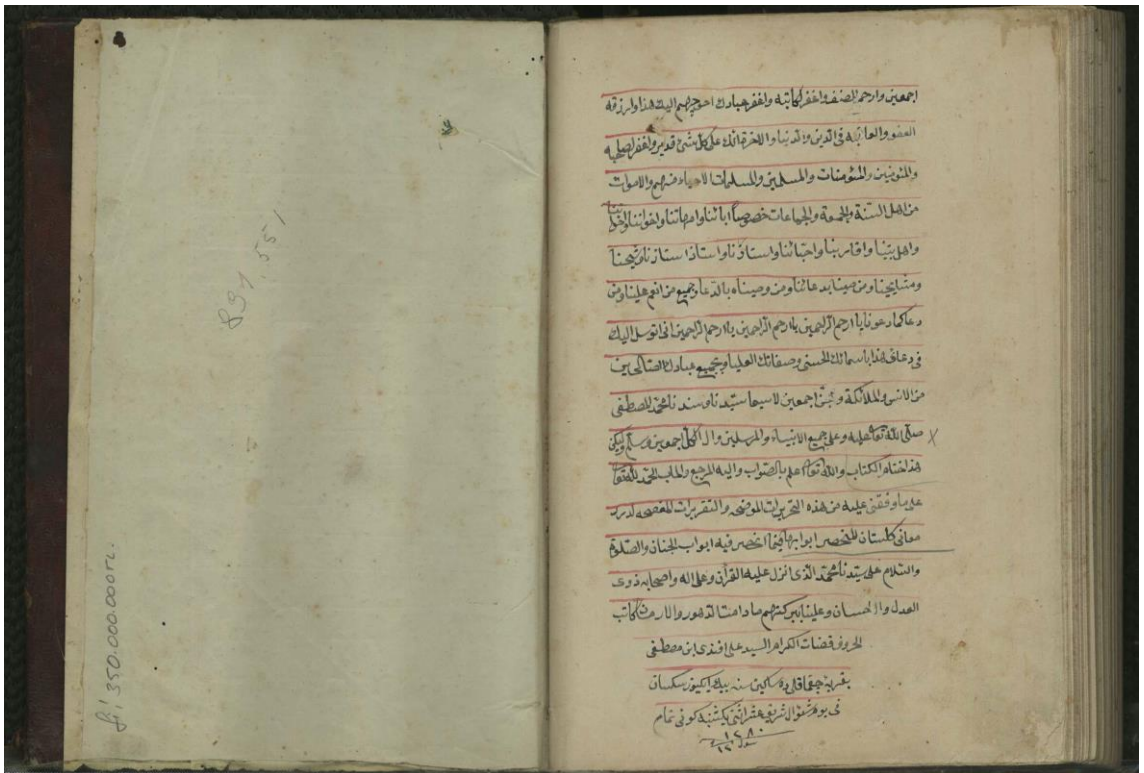 اجمعين وارحم لمصنفه واغفر لكاتبه واغفر عبادك احوجهم اليك هذا وارزقه
العفو والعافيه فى الدين والدنيا والاخرة انك على كل شئ قدير واغفر لصاحبه
والمئومنين والمئومنات والمسلمين والمسلمات الاحياء منهم والاموات
من اهل السنة والجمعة والجماعات خصوصاً ابائنا وامهاتنا واخواننا واخواتنا
واهل بيتنا واقاربنا واحبائنا واستاذنا واستاذ استاذنا وشيخنا
ومشايخنا ومن وصينا بدعائنا ومن وصيناه بالدعا وجميع من انعم علينا ومن
دعا كما دعونا يا ارحم الراحمين يا ارحم الراحمين يا ارحم الراحمين انى اتوسل اليك
فى دعائى هذا باسمائك الحسنى وصفاتك العليا وبجميع عبادك الصالحين
من الانس والملائكة و اجمعين لاسيما سيدنا وسندنا محمد المصطفى
صلى الله تعا عليه وعلى جميع الانبياء والمرسلين وال الكل اجمعين وسلم وليكن
هذا ختام الكتاب والله تعا اعلم بالصواب واليه المرجع والماب الحمد لله تعا
على ما وفقنى عليه من هذه التحريرات الموضحه والتقريرات المفصحه
معانى كلستان المنحصر ابوابها فيما انحصر فيه ابواب الجنان والصلوة
والسلام على سيدنا محمد الذى انزل عليه القرآن وعلى اله واصحابه ذوى
العدل والاحسان وعلينا ببركتهم مادامت الدهور والازمان كاتب
الحروف قضات الكرام السيد على افندى ابن مصطفى
بقريه ساكن سنه بيك ايكيوز سكسان
فى يوم شوال شريف يكشنبه كونى تمام
١٢٨٠
891,551
fi! 350.000.000 TL.